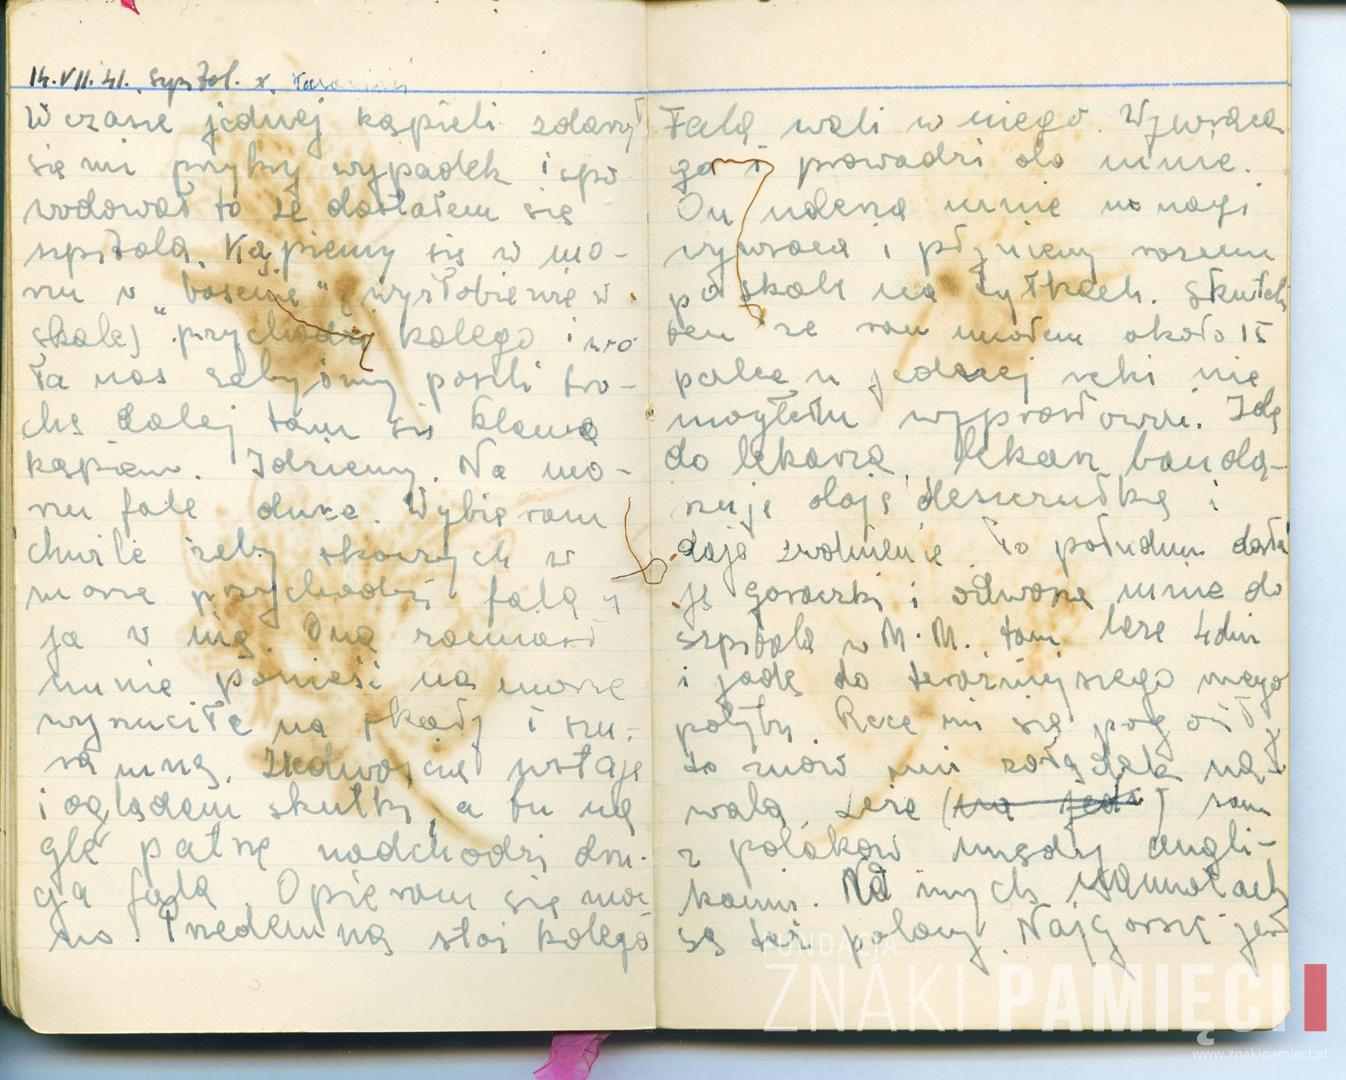 14.VII.41. szpital. x.
W czasie jednej kąpieli zdarzył
się mi przykry wypadek i spo
wodował to że dostałem się
szpitala. Kąpiemy się w mo-
rzu w "basenie" (wyżłobienie w
skale) przychodzi kolega i wo
ła nas żebyśmy poszli tro-
chę dalej tam się
kąpiem. Idziemy. Na mo-
rzu fale duże. Wybieram
chwile żeby skoczych w
morze przychodzi fala i
ja w nią. Ona zamiast
mnie ponieść na morze
wyrzuciła na skały i szu-
ra mną. wstaję
i oglądam skutki, a tu na
gle patrzę nadchodzi dru-
ga fala. Opieram się moc
no. Przedemną stoi kolega
Fala wali w niego. Wywraca
go i prowadzi do mnie.
On uderza mnie w nogi
wywraca i płyniemy razem
po skale na tyłkach. Skutek
ten że ran miałem około 15
palca u jednej ręki nie
mogłem wyprostować. Idę
do lekarza, lekarz banda-
żuje daję deszczułkę i
daje zwolnienie. Po południu dosta
ję gorączki i odwożą mnie do
szpitala w M.M. tam leżę 4 dni
i jadę do terazniejszego mego
pobytu. Ręce mi się pogoiły
to znów mi żołądek na-
wala. Leżę (na jed) sam
z polaków między angli-
kami. Na innych
są też polacy. Najgorsze jest
FUNDACJA
ZNAKI PAMIĘCI
www.znakipamieci.pl